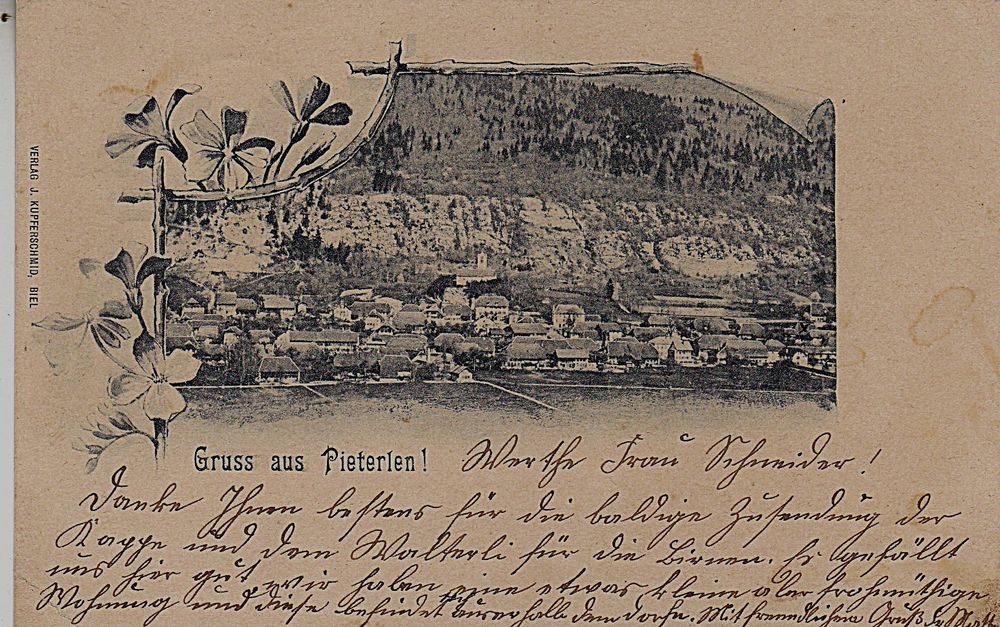 VERLAG J. KUPFERSCHMID, BIEL
Gruss aus Pieterlen! Werthe Frau Schneider!
Danke Ihnen bestens für die baldige Zusendung der
Kappe und dem Walterli für die Birnen. Es gefällt
uns hier gut, wir haben eine etwas kleine aber frohmüthige
Wohnung und diese befindet äuserhalb dem Dorfe. Mit freundlichem Gruß